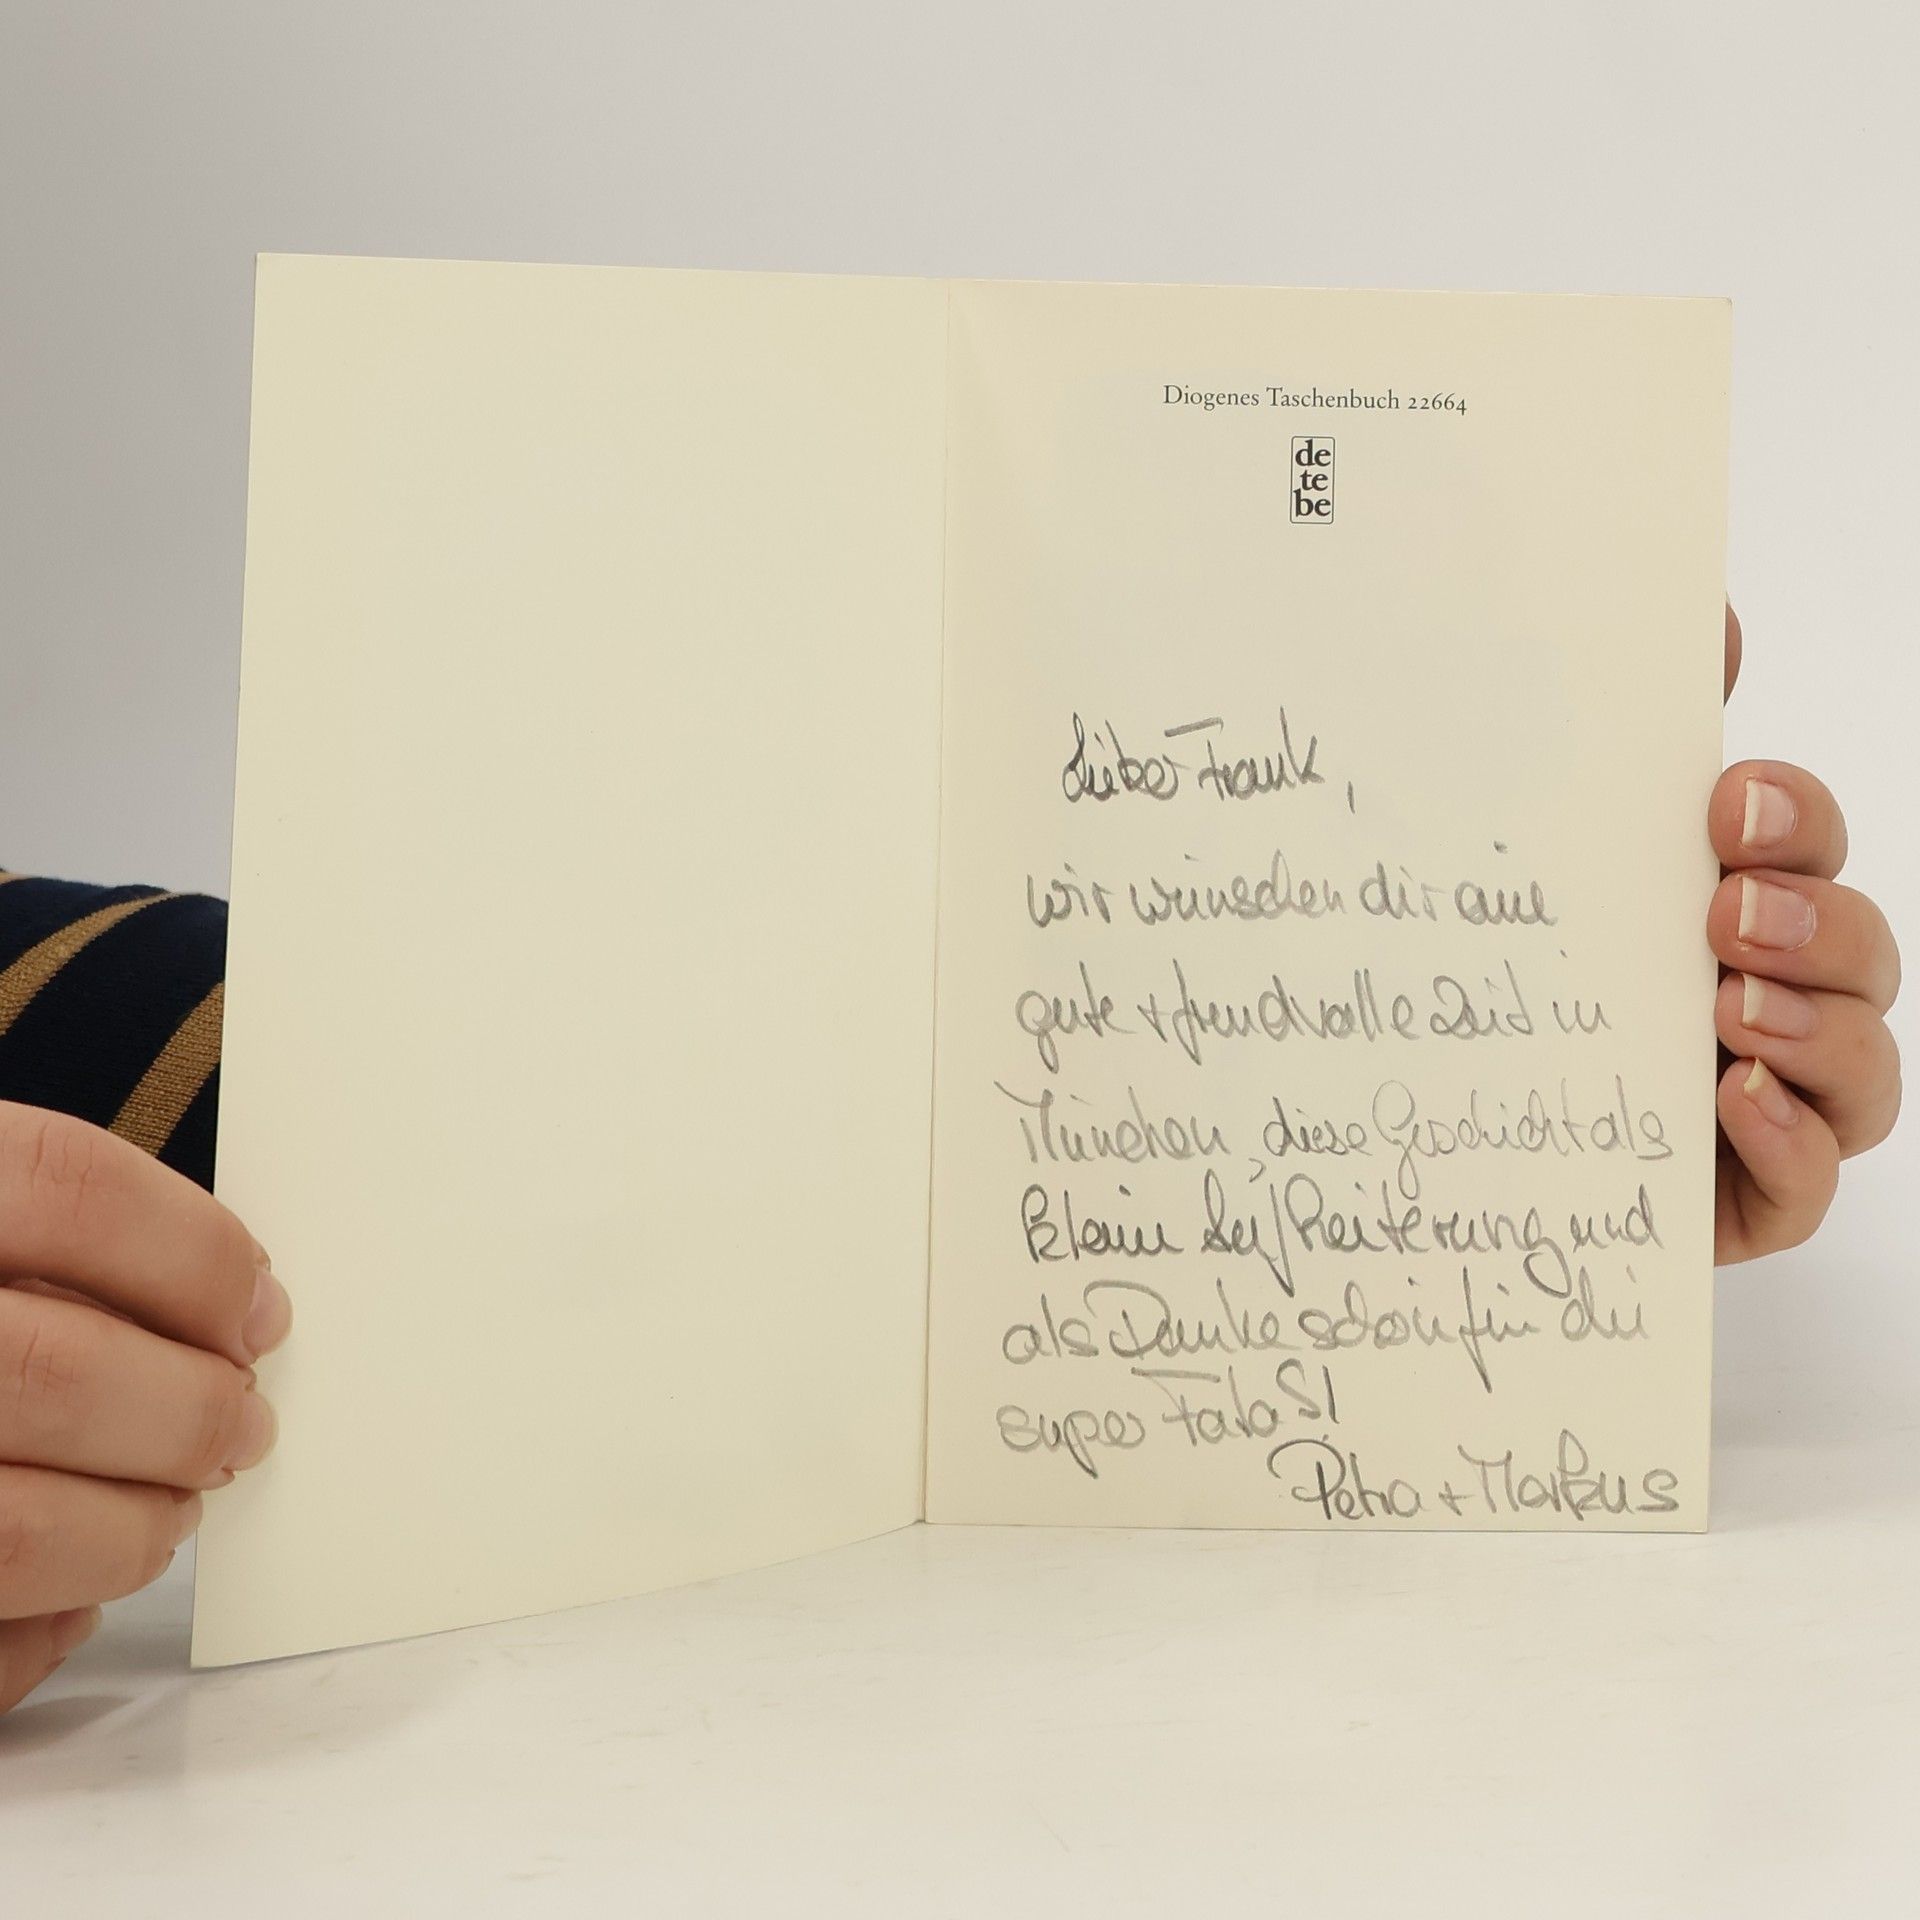 Diogenes Taschenbuch 22664
de
te
be
Lieber Frank,
wir wünschen dir eine
gute + freudvolle Zeit in
München, diese Geschicht als
kleine Aufheiterung und
als Dankeschön für die
super Fotos!
Petra + Markus